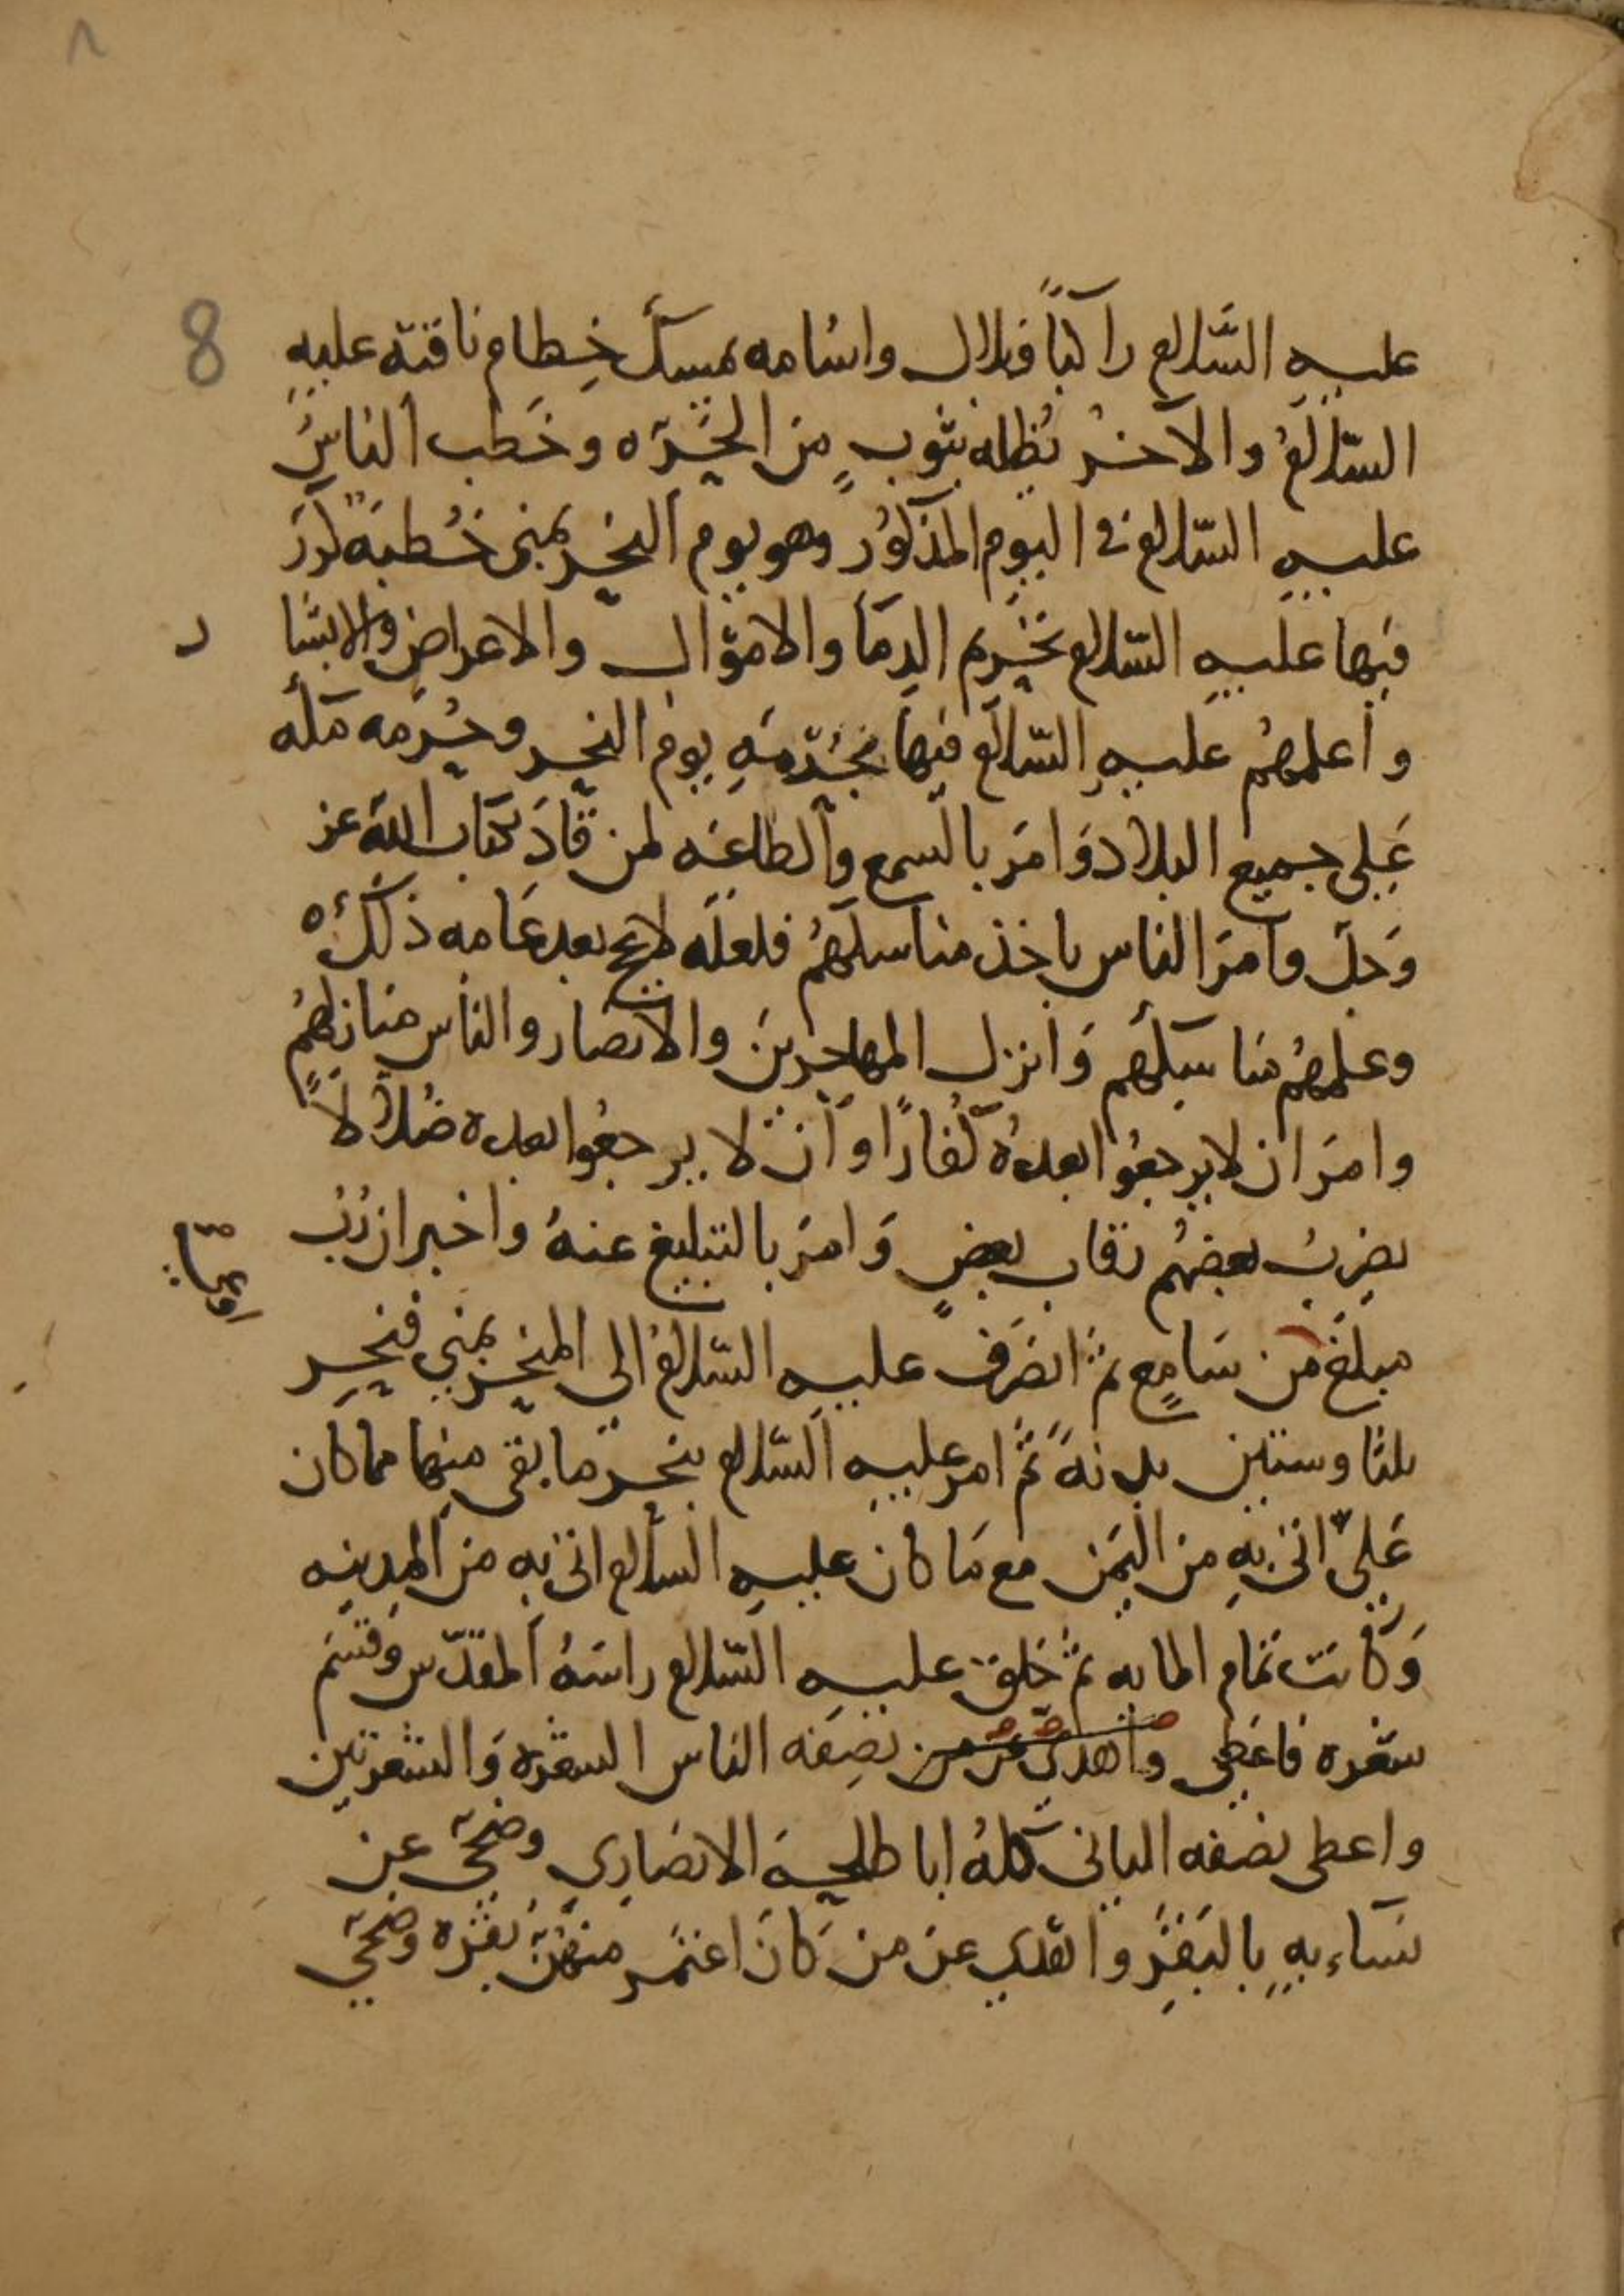 ٨
8
عليه السّلام راكباً وبلال واسامه يمسك خطام ناقته عليه
السّلامُ والآخرُ يُظله بثوبٍ من الحَرّه وخَطَب الناسَ
عليه السّلام في اليوم المذكور وهو يوم النحر بمنى خُطبةً كرّرَ
فيها عليه السّلام تحريم الدِمَا والاموَال والاعراضِ والابشا
ر
وأعلمهُم عليهِ السّلام فيها بحُرمَةِ يوم النحر وحُرمه مكه
عَلى جميع البلاد وَامَر بالسمع والطاعَه لمن قادَ بكتاب الله عز
وَجلّ وامَر الناس باخذ مناسكهُم فلعله لا يحج بعد عَامه ذلك ه
وعلمهُم مناسكهم وَانزل المهاجرين والانصار والناس منازلهُم
وامَر ان لا يرجعُوا بعدهُ كُفاراً او اَن لا يرجعُوا بعده ضُلالاً
يضربُ بعضهُم رقاب بعضٍ وَامَر بالتبليغ عنهُ واخبر ان رُبّ
مبلَغ من سَامعٍ ثمّ انصَرف عليه السّلامُ الى المنحر بمنى فنحر
ثلثا وستين بدنةً ثمّ امر عليه السّلام بنحر ما بقى منها مما كان
عَليٌّ اتى بهِ من اليَمن مع مَا كان عليهِ السلام اتى به من المدينه
وَكانت تمام المايه ثمّ حَلق عليه السّلام راسَهُ المقدّس وَقسَم
شعره فاعَطى واهدى عن من نصفه الناس الشعره وَالشعرتين
واعطى نصفه الثانى كلهُ ابا طلحه الانصَارِي وضحّى عن
نسَاءيهِ بالبَقرِ واهدى عن من كَانَ اعتمَر منهُنّ بقرَه وضحّى